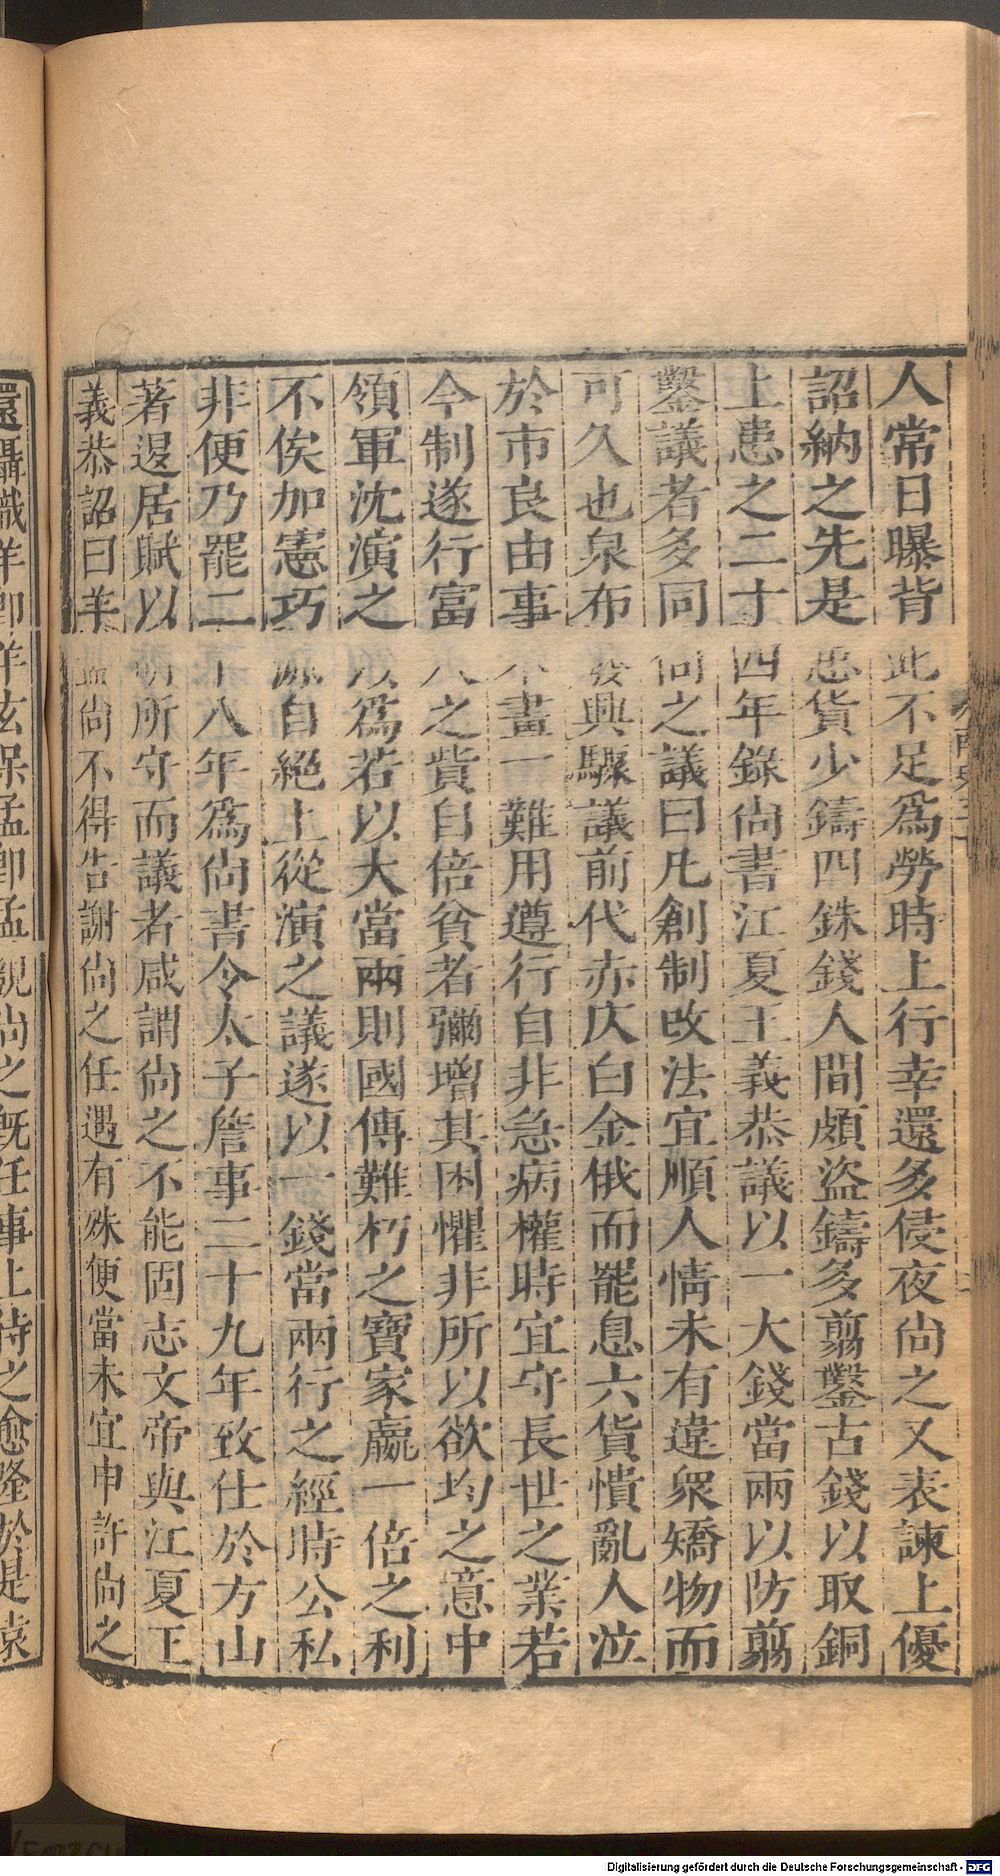 人常日曝背此不足爲勞時上行幸還多侵夜尙之又表諫上優
詔納之先是患貨少鑄四銖錢人間頗盜鑄多翦鑿古錢以取銅
上患之二十四年錄尙書江夏王義恭議以一大錢當兩以防翦
鑿議者多同尙之議曰凡創制改法宜順人情未有違衆矯物而
可久也泉布發興驟議前代赤仄白金俄而罷息六貨憒亂人泣
於市良由事不畫一難用遵行自非急病權時宜守長世之業若
今制遂行富人之貲自倍貧者彌增其困懼非所以欲均之意中
領軍沈演之以爲若以大當兩則國傳難朽之寶家贏一倍之利
不俟加憲巧源自絕上從演之議遂以一錢當兩行之經時公私
非便乃罷二十八年爲尙書令太子詹事二十九年致仕於方山
著退居賦以明所守而議者咸謂尙之不能固志文帝與江夏王
義恭詔曰羊孟尙不得告謝尙之任遇有殊便當未宜申許尙之
還攝職羊卽羊玄保孟卽孟覬尙之旣任事上待之愈隆於是袁
Digitalisierung gefördert durch die Deutsche Forschungsgemeinschaft - DFG